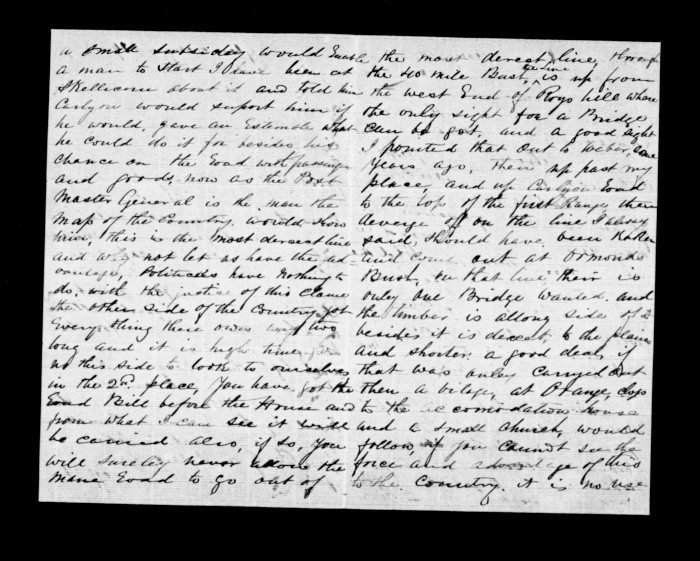 a small subsiday would Enable
a man to start I have been at
Skellicorn about it and told him
Carlyon would support him if
he would, gave an Estemate what
he could do it for besides his
chance on the Road with passengers
and goods, now as the Post
Master General is the man the
Map of the Country would show
him, this is the most derect line
and why not let us have the ad=
vantage, Politicks have nothing to
do, with the justice of this Clame
the other side of the Country got
Every thing there own way two
long and it is high time for
us this side to look to ourselves
in the 2nd place, You have got the
Road Bill before the House and
from what I can see it will
be carried also, if so, You
will surley never alow the
mane Road to go out of
the most derect line through
the 40 mile Bush, the line is up from
the west End of Roys hill where
the only sight for a Bridge
can be got, and a good sight
I pointed that out to Weber, some
Years ago, then up past my
place, and up Carlyon Road
to the top of the first Range then
deverge off on the line I always
said, should have been taken
and come out at Ormonds
Bush, on that line their is
only one Bridge wanted and
the timber is allong side of it
besides it is decect, to the plains
and shorter a good deal, if
that was onley Carryed out
then a vilege, at Orange, 
to the accomodation House
and a small church, would
follow, if you cannot see the
force and advantage of this
to the Country it is no use